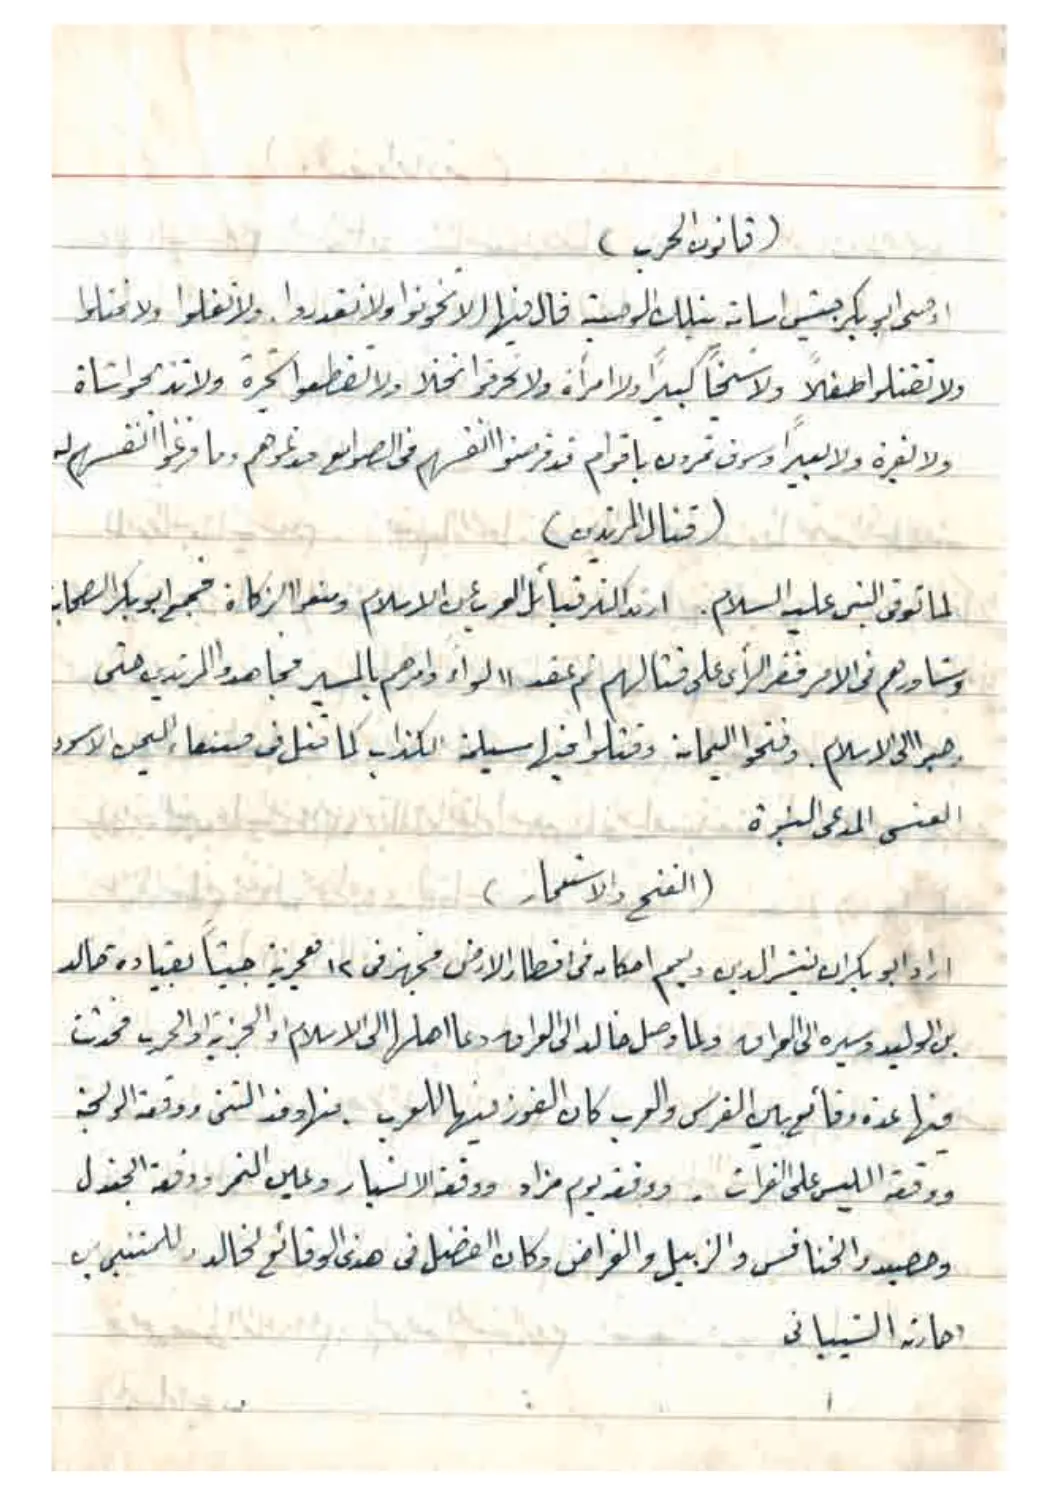 (قانون الحرب)
اوصى ابو بكر جيش اسامة بتلك الوصية قال فيها (لا تخونوا ولا تغدروا. ولا تغلوا ولا تمثلوا
ولا تقتلوا طفلاً ولا شيخاً كبيراً ولا امرأة ولا تحرقوا نخلا ولا تقطعوا شجرة ولا تذبحوا شاة
ولا بقرة ولا بعيراً وسوف تمرون باقوام قد فرضوا انفسهم في الصوامع فدعوهم وما فرغوا انفسهم له
(قتال المرتدين)
لما توفى النبي عليه السلام. ارتد اكثر قبائل العرب عن الاسلام ومنعوا الزكاة فجمع ابو بكر الصحابة
وشاورهم في الامر فقر الرأى على قتالهم ثم عقد ١١ لواءً وامرهم بالمسير فجاهدوا المرتدين حتى
رجعوا الى الاسلام. وفتحوا اليمامة وقتلوا فيها مسيلمة الكذاب كما قتل في صنعاء اليمن الاسود
العنسي المدعي النبوة
(الفتح والاستعمار)
اراد ابو بكر ان ينشر الدين ويعمم احكامه في اقطار الارض فجهز في ١٢ هجرية جيشاً بقيادة خالد
بن الوليد وسيره الى العراق ولما وصل خالد الى العراق دعا اهلها الى الاسلام او الجزية او الحرب فحدثت
فيها عدة وقائع بين الفرس والعرب كان الفوز فيها للعرب. منها وقعة الثني ووقعة الولجة
ووقعة الليس على الفرات. ووقعة يوم وقعة الانبار وعين التمر ووقعة
وحصيد والخنافس والزميل والفراض وكان الفضل في هذه الوقائع لخالد وللمثنى بن
حارثه الشيباني